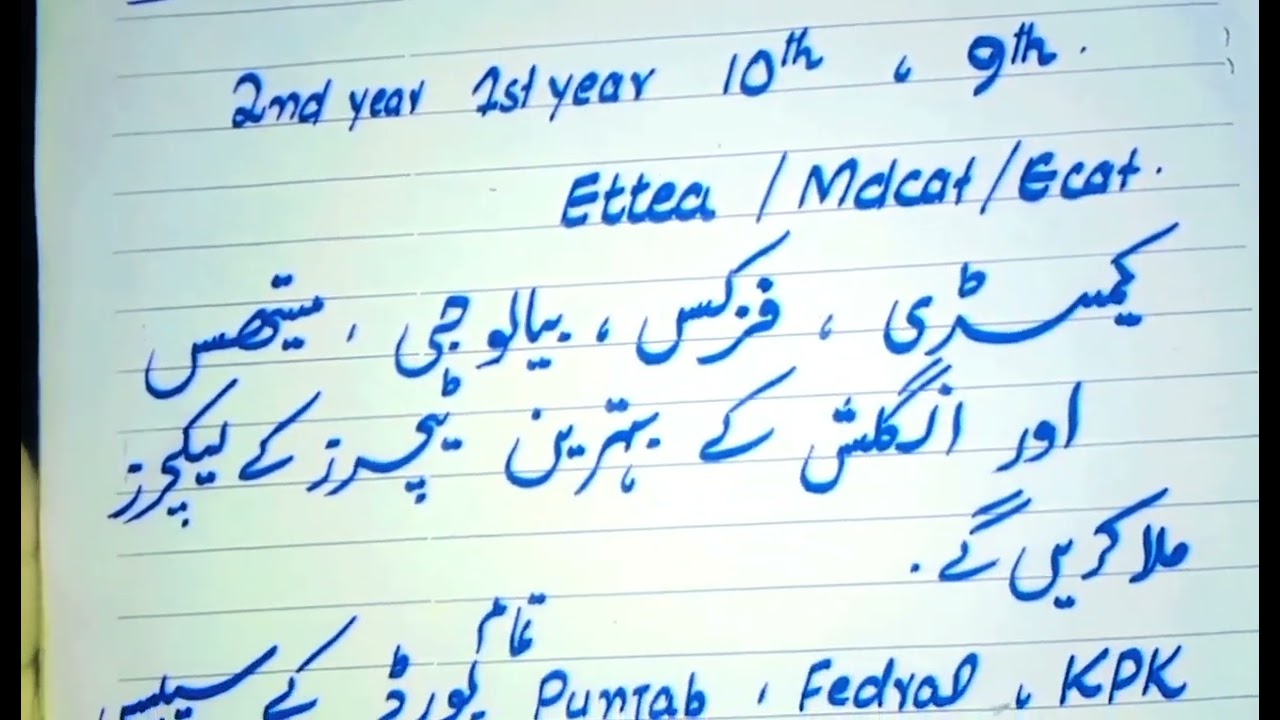 9th ، 10th 1st year 2nd year
Ettea / Mdcat / Ecat.
کیمسٹری ، فزکس ، بیالوجی ، میتھس
اور انگلش کے بہترین ٹیچرز کے لیکچرز
ملا کریں گے .
تمام
KPK ، Fedral ، Punjab بورڈ کے سیلبس